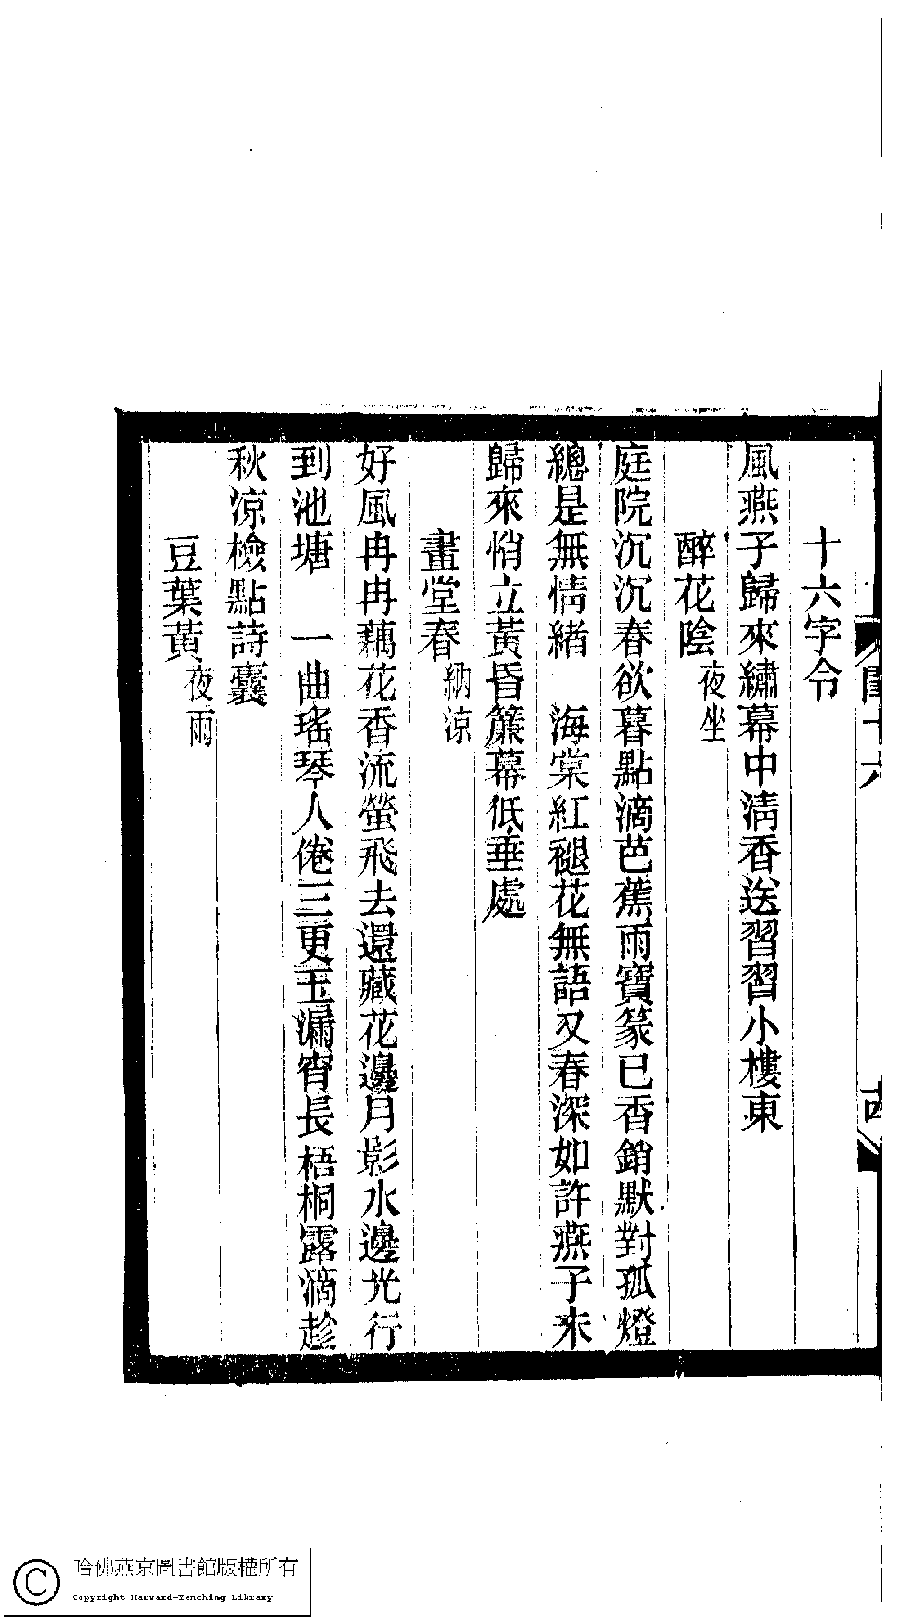 十六字令
風燕子歸來繡幕中清香送習習小樓東
醉花陰夜坐
庭院沉沉春欲暮點滴芭蕉雨寶篆已香銷默對孤燈
總是無情緒　海棠紅褪花無語又春深如許燕子來
歸來悄立黃昏簾幕低垂處
畫堂春納涼
好風冉冉藕花香流螢飛去還藏花邊月影水邊光行
到池塘　一曲瑤琴人倦三更玉漏宵長梧桐露滴趁
秋涼檢點詩囊
豆葉黃夜雨
哈佛燕京圖書館版權所有
Copyright Harvard-Yenching Library